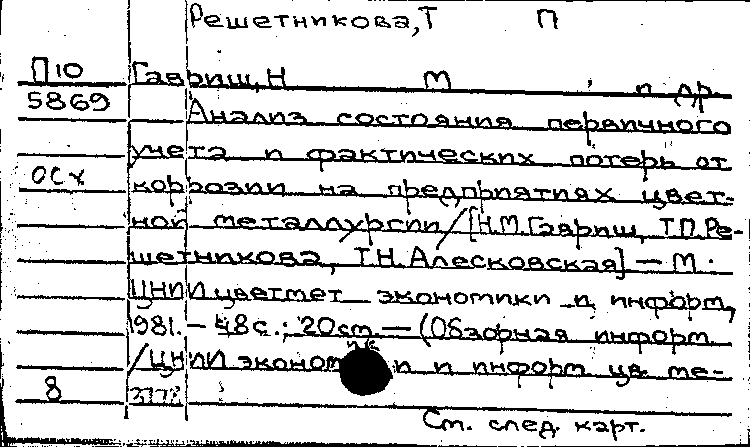 Решетникова,Т П
П10 Гавриш,Н М и др.
5869 Анализ состояния первичного
учета и фактических потерь от
ОСХ коррозии на предприятиях цвет-
ной металлургии/[Н.М.Гавриш, Т.П.Ре-
шетникова, Т.Н.Алесковская] — М.:
ЦНИИцветмет экономики и информ,
1981. — 48с.; 20см — (Обзорная информ
/ЦНИИ эконом и информ цв. ме-
8
См. след. карт.